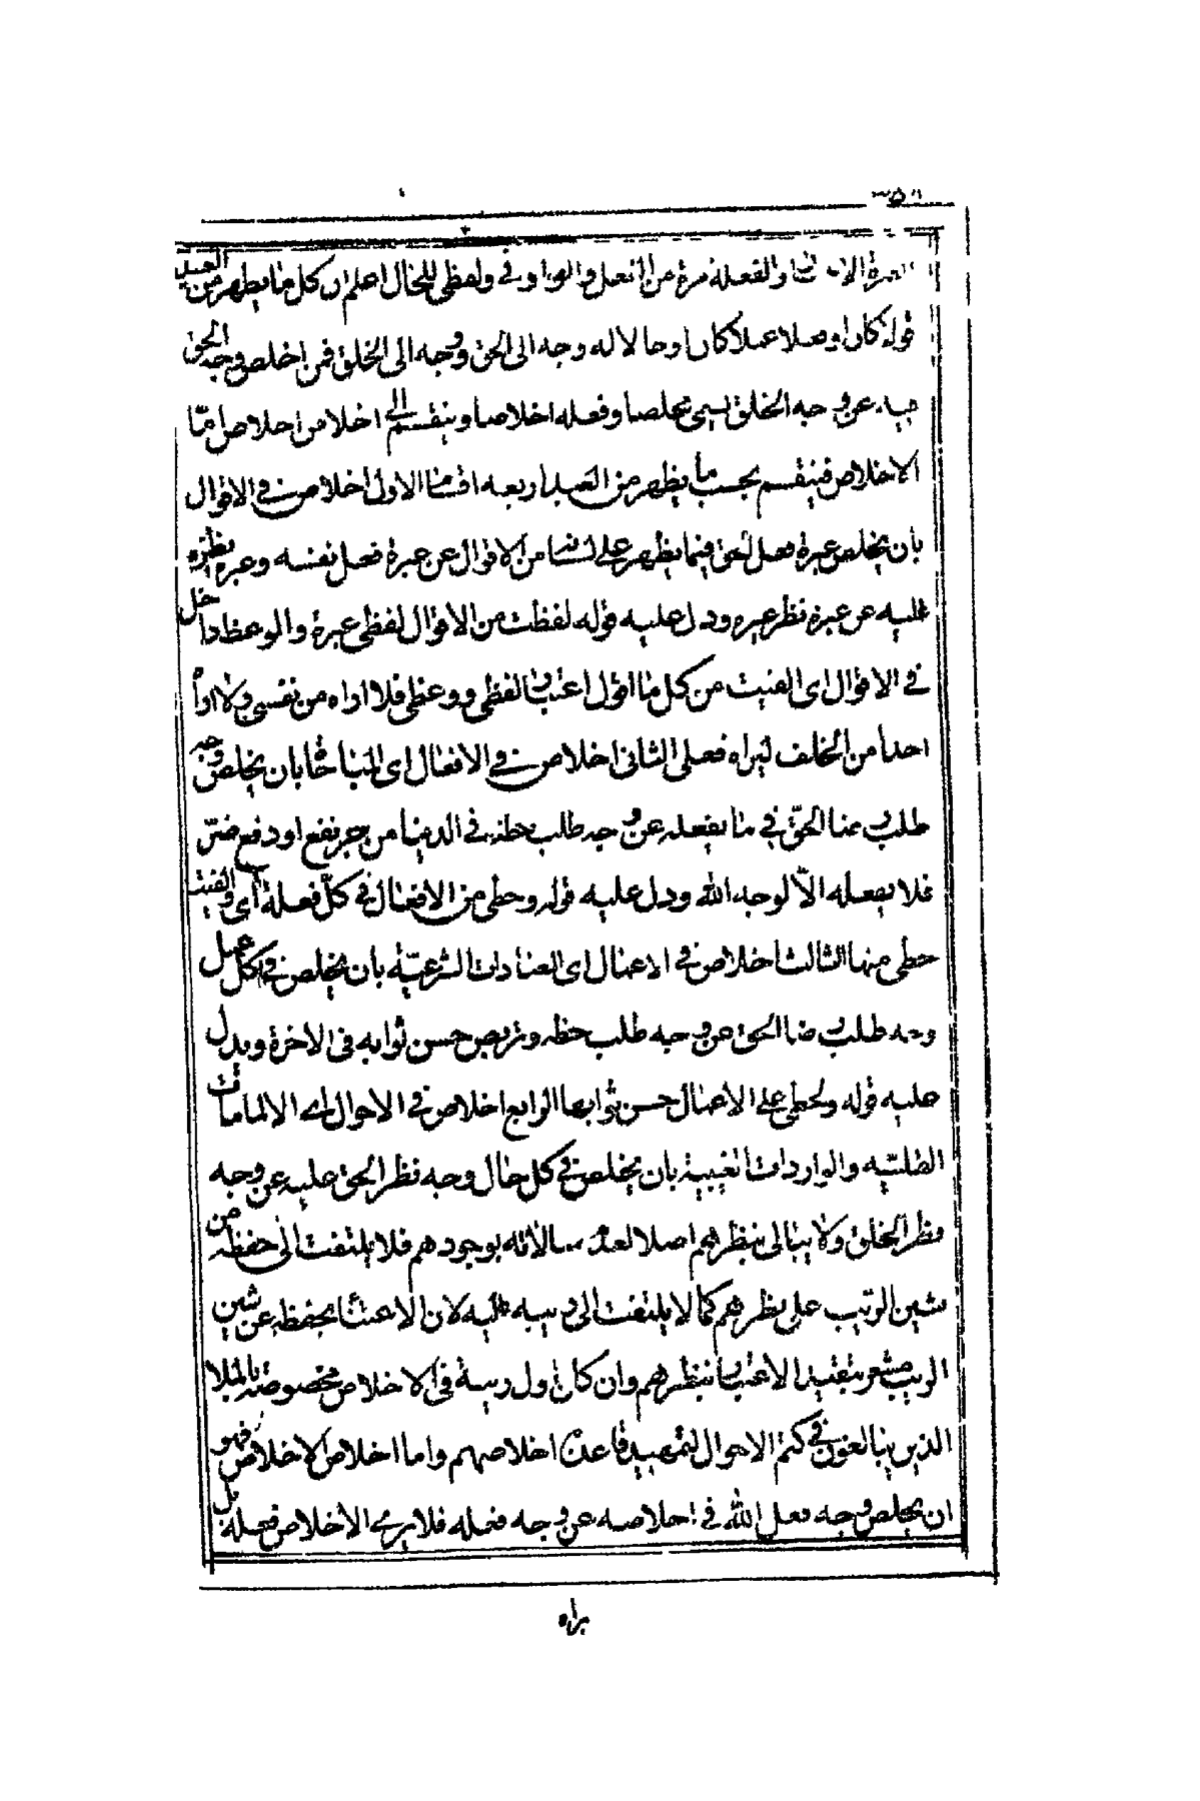 والفعلة مرة من الفعل والواو في ولفظي للحال اعلم ان كل ما يظهر من العبد
قولا كان او فعلا عملا كان او حالا له وجه الى الحق ووجه الى الخلق فمن اخلص وجه الحق
عن وجه الخلق يسمى مخلصا وفعله اخلاصا وينقسم الى اخلاص واخلاص امّا
الاخلاص فينقسم بحسب ما يظهر من العبد اربعه اقسام الاول اخلاص في الاقوال
بان يخلص عبرة فعل الحق فيما يظهر على لسانه من الاقوال عن عبرة فعل نفسه وعبرة نظره
عليه عن عبرة نظر غيره ودل عليه قوله لفظت من الاقوال لفظي عبرة والوعظ داخل
في الاقوال اى الفيت من كل ما اقول لفظي ووعظي فلا اراه من نفسي ولا ارى
احدا من الخلف ليراه فعلى الثانى اخلاص في الافعال اى المباحات بان يخلص وجه
طلب رضا الحقّ في ما يفعله عن وجه طلب حظه في الدنيا من جر نفع او دفع ضرّ
فلا يفعله الاّ لوجه الله ودل عليه قوله وحظى من الافعال في كلّ فعلة اى والفيت
حظى منها الثالث اخلاص في الاعمال اى العبادات الشرعيّة بان يخلص في كل عمل
وجه طلب رضا الحق عن وجه طلب حظه وتربص حسن ثوابه فى الاخرة ويدل
عليه قوله ولحظى على الاعمال حسن ثوابها الرابع اخلاص في الاحوال اى الالمامات
القلبيه والواردات الغيبية بان يخلص في كل حال وجه نظر الحق عليه عن وجه
نظر الخلق ولا يبالى بنظرهم اصلا لعدم مبالاته بوجودهم فلا يلتفت الى حفظه من
شين الريب على نظرهم كما لا يلتفت الى ريبه عليه لان الاعتناء بحفظه عن شين
الريب مشعر بتقييد الاعتبار بنظرهم وان كان اول ريبة فى الاخلاص مخصوصة بالملا
الذين يبالغون في كتم الاحوال لتمهيد قاعدة اخلاصهم واما اخلاص الاخلاص فهو
ان يخلص وجه فعل الله في اخلاصه عن وجه فعله فلا يرى الاخلاص فعله بل
يراه